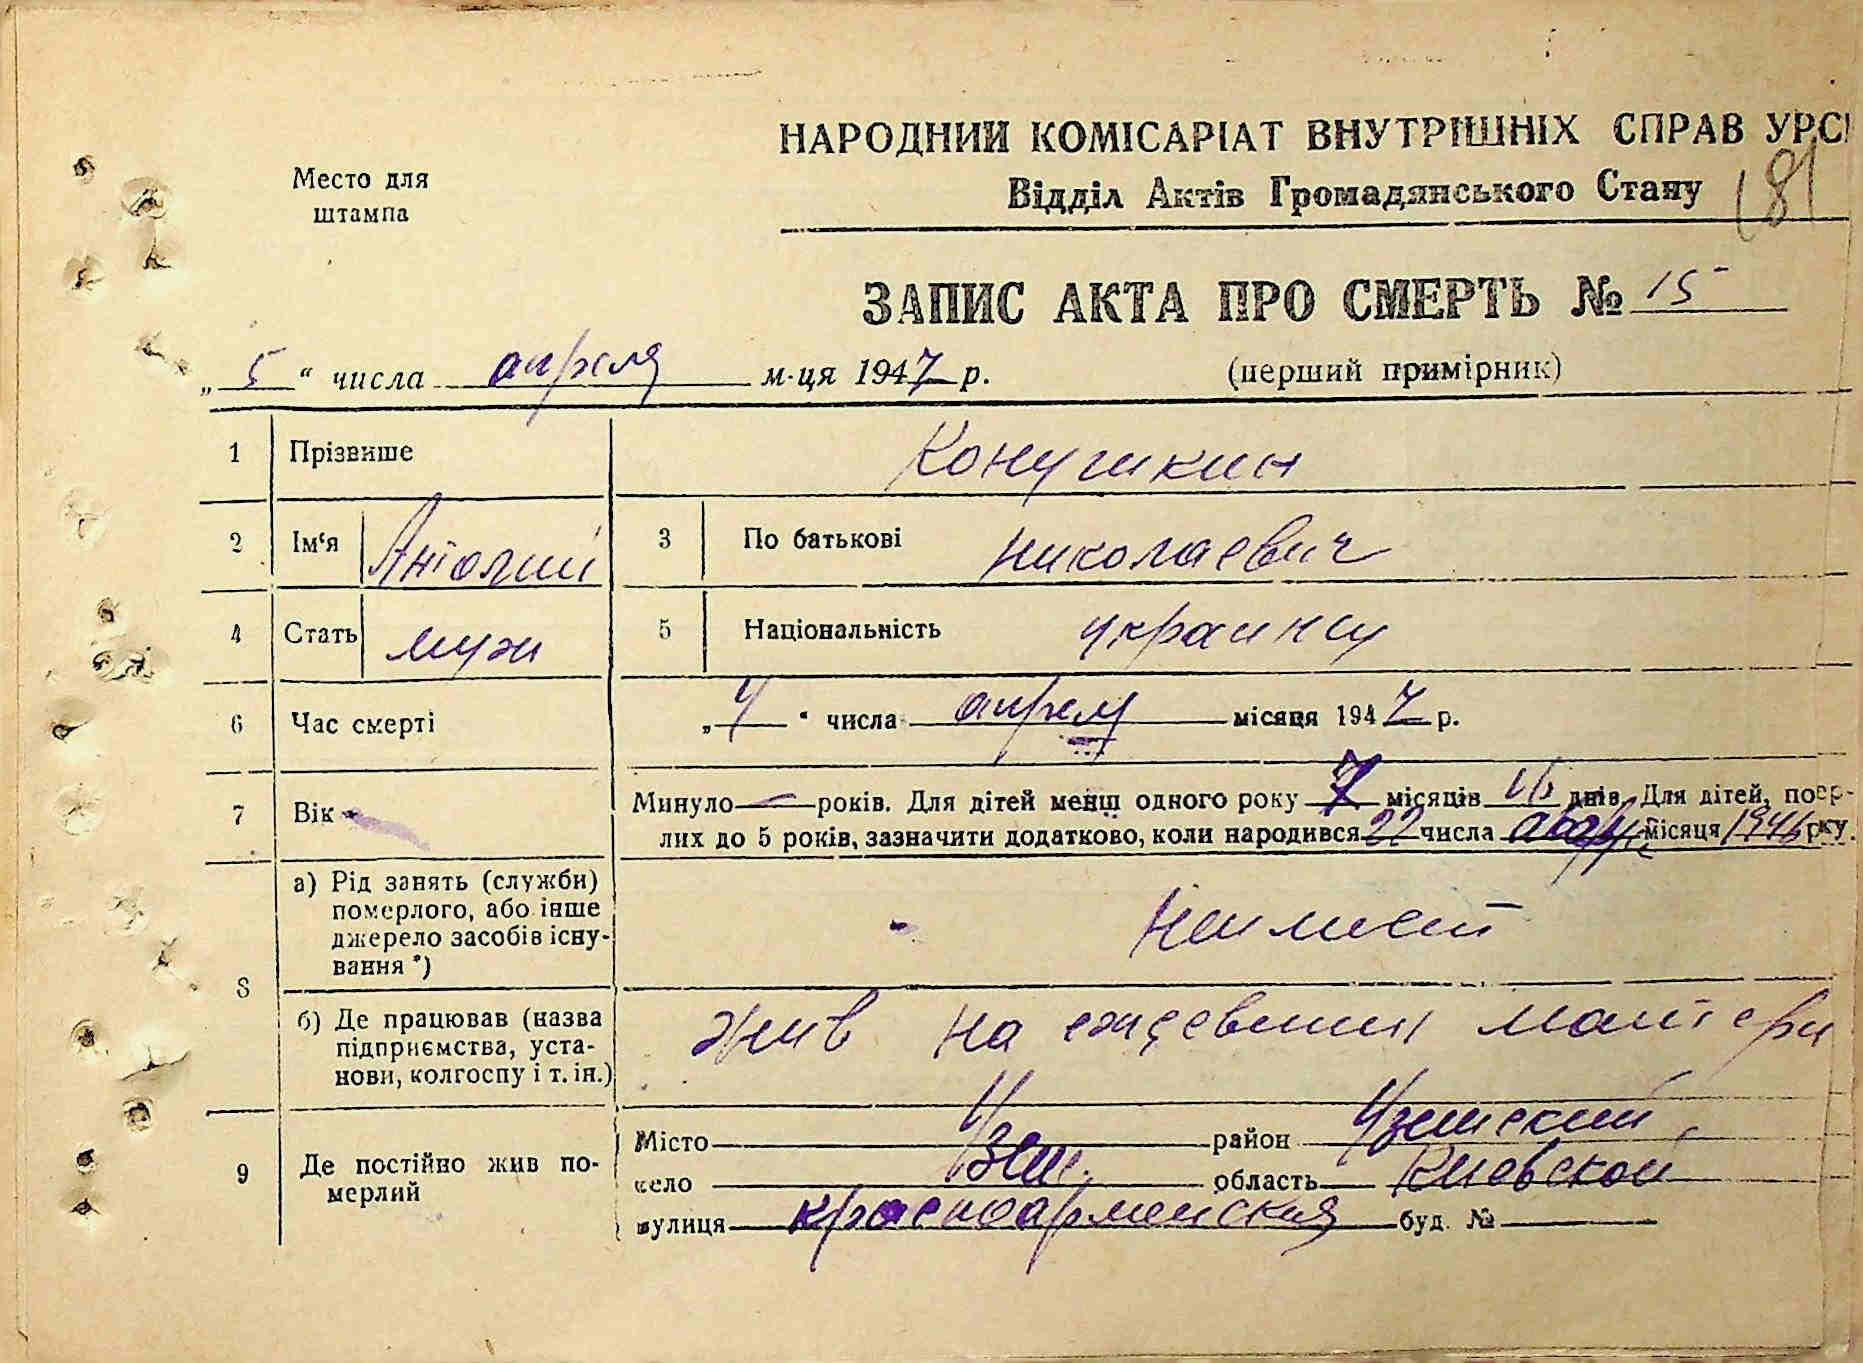 НАРОДНИЙ КОМІСАРІАТ ВНУТРІШНІХ СПРАВ УРС
Відділ Актів Громадянського Стану
181
Место для
штампа
ЗАПИС АКТА ПРО СМЕРТЬ № 15
„5“ числа апреля м-ця 1947 р. (перший примірник)
1 Прізвише Конушкин
2 Ім'я Анатолий 3 По батькові Николаевич
4 Стать муж 5 Національність украинц
6 Час смерті „4“ числа апреля місяця 1947 р.
7 Вік Минуло — років. Для дітей менш одного року 7 місяців днів. Для дітей, помер-
лих до 5 років, зазначити додатково, коли народився 22 числа місяця 1946 року.
8 а) Рід занять (служби)
померлого, або інше
джерело засобів існу-
вання *)
б) Де працював (назва
підприємства, уста-
нови, колгоспу і т. ін.)
жив на иждевении матери
9 Де постійно жив по-
мерлий
Місто Узин район Узинский
село область Киевской
вулиця красноармейская буд. №